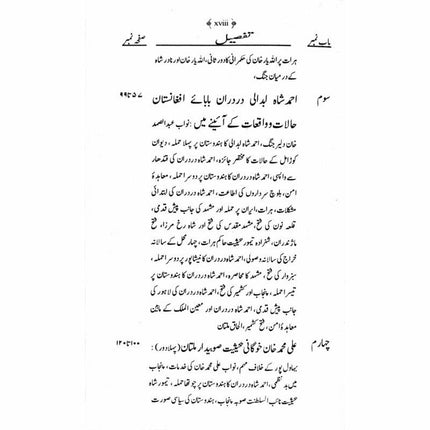 ﴾ xviii ﴿
باب نمبر تفصیل صفحہ نمبر
ہرات پر الٰہ یار خان کی حکمرانی کا دور ثانی، اللہ یار خان اور نادر شاہ
کے درمیان جنگ،
سوم احمد شاہ ابدالی دردران بابائے افغانستان ۵۷ تا ۹۹
حالات و واقعات کے آئینے میں: نواب عبدالصمد
خان دلیر جنگ، احمد شاہ ابدالی کا ہندوستان پر پہلا حملہ، دیوان
کوڑامل کے حالات کا مختصر جائزہ، احمد شاہ دردران کی قندھار
سے واپسی، احمد شاہ دردران کا ہندوستان پر دوسرا حملہ، معاہدۂ
امن، بلوچ سرداروں کی اطاعت، احمد شاہ دردران کی ابتدائی
مشکلات، ہرات، ایران پر حملہ اور مشہد کی جانب پیش قدمی،
قلعہ نون کی فتح، مشہد مقدس کی فتح اور شاہ رخ مرزا، فتح
ماژندران، شہزادہ تیمور بحیثیت حاکم ہرات، چہار محل کے سالانہ
خراج کی سالانہ وصولی، احمد شاہ دردران کا نیشاپور پر دوسرا حملہ،
سبزوار کی فتح، مشہد کا محاصرہ، احمد شاہ دردران کا ہندوستان پر
تیسرا حملہ، پنجاب اور کشمیر کی فتح، احمد شاہ دردران کی لاہور کی
جانب پیش قدمی، احمد شاہ دردران اور معین الملک کے مابین
معاہدۂ امن، فتح کشمیر، الحاق ملتان
چہارم علی محمد خان خوگانی بحیثیت صوبیدار ملتان (پہلا دور): ۱۰۰ تا ۱۲۰
بہاولپور کے خلاف مہم، نواب علی محمد خان کی خدمات، پنجاب
میں بدنظمی، احمد شاہ دردران کا ہندوستان پر چوتھا حملہ، تیمور شاہ
بحیثیت نائب السلطنت صوبہ پنجاب، ہندوستان کی سیاسی صورت